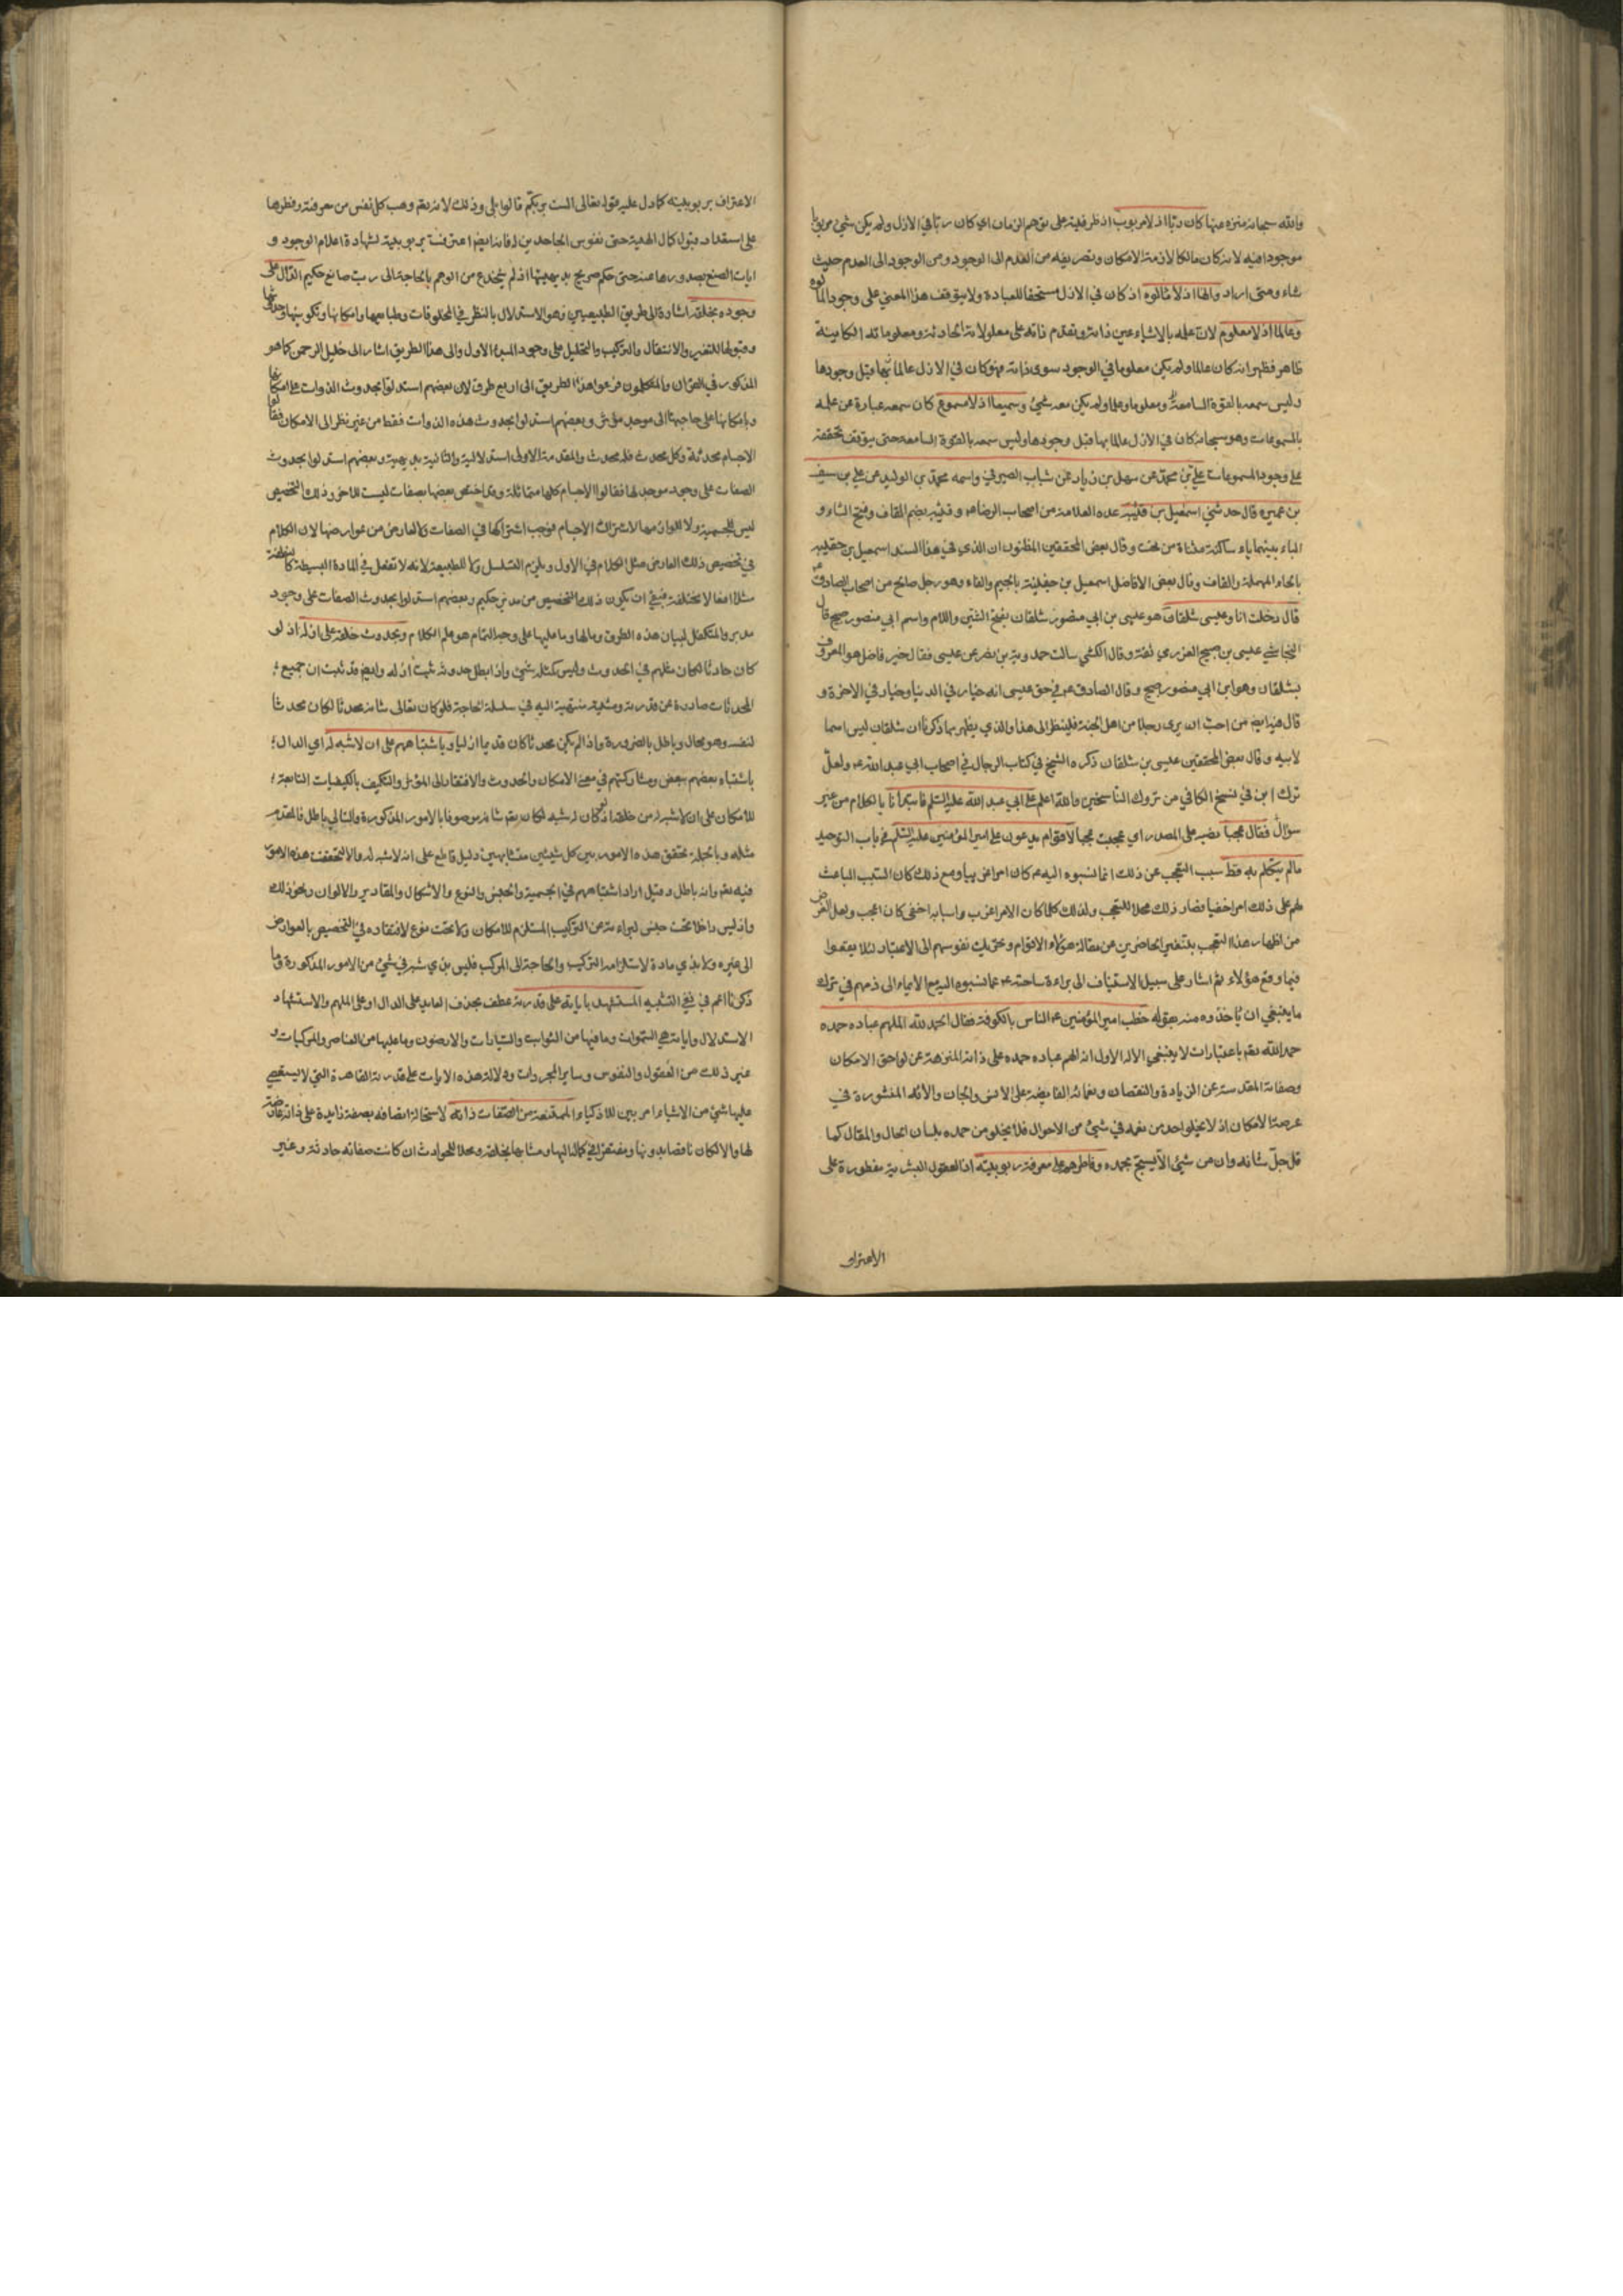 والله سبحانه منزه عنها كان ربّا اذ لا مربوب اذ ظرفية على توهم الزمان اي كان ربّا في الازل ولم يكن شيء مربوبا
موجودا فيه لانه كان مالكا لازمة الامكان وتصريفه من العدم الى الوجود ومن الوجود الى العدم حيث
شاء ومتى اراد والها اذ لا مألوه اذ كان في الازل مستحقا للعبادة ولا يتوقف هذا المعنى على وجود المألوه
وعالما اذ لا معلوم لان علمه بالاشياء عين ذاته وتقدم ذاته على معلولاته الحادثة ومعلوماته الكاينة
ظاهر فظهر انه كان عالما ولم يكن معلوما في الوجود سوى ذاته فهو كان في الازل عالما بها قبل وجودها
وليس سمعه بالقوة السامعة ومعلوما وعلما ولم يكن معه شيء وسميعا اذ لا مسموع كان سمعه عبارة عن علمه
بالمسموعات وهو سبحانه كان في الازل عالما بها قبل وجودها وليس سمعه بالقوة السامعة حتى يتوقف تحققه
على وجود المسموعات علي بن محمد عن سهل بن زياد عن شباب الصيرفي واسمه محمد بن الوليد عن علي بن سيف
بن عميرة قال حدثني اسمعيل بن قتيبه عده العلامة من اصحاب الرضا ع وقتيبه بضم القاف وفتح التاء و
الباء بينهما ياء ساكنة مثناة من تحت وقال بعض المحققين المظنون ان الذي في هذا السند اسمعيل بن حقيبه
بالحاء المهملة والقاف وقال بعض الافاضل اسمعيل بن جفينة بالجيم والفاء وهو رجل صالح من اصحاب الصادق ع
قال دخلت انا وعيسى شلقان هو عيسى بن ابي منصور شلقان بفتح الشين واللام واسم ابي منصور صبيح قال
النجاشي عيسى بن صبيح العزرمي ثقة وقال الكشي سالت حمدويه بن نصر عن عيسى فقال خير فاضل هو المعروف
بشلقان وهو ابن ابي منصور صبيح وقال الصادق ع في حق عيسى انه خيار في الدنيا وخيار في الاخرة و
قال فيه ايضا من احبّ ان يرى رجلا من اهل الجنة فلينظر الى هذا والذي يظهر بما ذكرنا ان شلقان ليس اسما
لابيه وقال بعض المحققين عيسى بن شلقان ذكره الشيخ في كتاب الرجال في اصحاب ابي عبد الله ع ولعل
ترك ابن في نسخ الكافي من تروك الناسخين والله اعلم على ابي عبد الله عليه السّلم فابتدأنا بالكلام من غير
سؤال فقال عجبا نصبه على المصدر اي عجبت عجبا لاقوام يدعون على امير المؤمنين عليه السّلم في باب التوحيد
مالم يتكلم به قط سبب التعجب عن ذلك انما نسبوه اليه ع كان امرا غريبا ومع ذلك كان السبب الباعث
لهم على ذلك امرا خفيا فصار ذلك محلا للتعجب ولذلك كلما كان الامر اغرب واسبابه اخفى كان اعجب ولعل الغرض
من اظهار هذا التعجب تنفير الحاضرين عن مقالة هؤلاء الاقوام وتحريك نفوسهم الى الاعتبار لئلا يقعوا
فيما وقع هؤلاء ثم اشار على سبيل الاستيناف الى براءة ساحته ع عما نسبوه اليه مع الايماء الى ذمهم في ترك
ما ينبغي ان ياخذوه منه بقوله خطب امير المؤمنين ع الناس بالكوفة فقال الحمد لله الملهم عباده حمده
حمد الله تعم باعتبارات لا ينبغي الا له الاول انه الهم عباده حمده على ذاته المنزهة عن لواحق الامكان
وصفاته المقدسة عن الزيادة والنقصان ونعمائه الفايضة على الانس والجان والائه المنشورة في
عرصة الامكان اذ لا يخلو احد من نعمه في شيء من الاحوال فلا يخلو من حمده بلسان الحال والمقال كما
قال جلّ شانه وان من شيء الّا يسبّح بحمده وفاطرهم على معرفة ربوبيّته اذ العقول البشرية مفطورة على
الاعتراف
الاعتراف بربوبيته كما دل عليه قوله تعالى الست بربكم قالوا بلى وذلك لانه تعم وهب كل نفس من معرفته وفطرها
على استعداد قبول كمال الهية حتى نفوس الجاحدين له فانها ايضا معترفة بربوبيته لشهادة اعلام الوجود و
ايات الصنع بصدورها عنه حتى حكم صريح بديهيتها اذ لم ينخدع من الوهم بالحاجة الى ربّ صانع حكيم الدّال على
وجوده بخلقه اشارة الى طريق الطبيعيين وهو الاستدلال بالنظر في المخلوقات وطبايعها وامكانها وتكوينها وحدوثها
وقبولها للتغير والانتقال والتركيب والتحليل على وجود المبدء الاول والى هذا الطريق اشار الى خليل الرحمن كما هو
المذكور في القران والمتكلمون فرعوا هذا الطريق الى اربع طرق لان بعضهم استدلوا بحدوث الذوات على امكانها
وبامكانها على حاجتها الى موجد مؤثر وبعضهم استدلوا بحدوث هذه الذوات فقط من غير نظر الى الامكان فقالوا
الاجسام محدثة وكل محدث فله محدث والمقدمة الاولى استدلالية والثانية بديهية وبعضهم استدلوا بحدوث
الصفات على وجود موجد لها فقالوا الاجسام كلها متماثلة وقد اختص بعضها بصفات ليست للاخر وذلك التخصيص
ليس للجسمية ولا للوازمها لاشتراك الاجسام فوجب اشتراكها في الصفات ولا لعارض من عوارضها لان الكلام
في تخصيص ذلك العارض مثل الكلام في الاول ويلزم التسلسل ولا للطبيعة لانه لا تفعل في المادة البسيطة كالنطفة
مثلا افعالا مختلفة فبقي ان يكون ذلك التخصيص من مدبر حكيم وبعضهم استدلوا بحدوث الصفات على وجود
مدبر والمتكفل لبيان هذه الطرق ومالها وما عليها على وجه التمام هو علم الكلام وبحدوث خلقه على ازله اذ لو
كان حادثا لكان مثلهم في الحدوث وليس كمثله شيء واذا بطل حدوثه ثبت ازله وايضا قد ثبت ان جميع
المحدثات صادرة عن قدرته ومشيته منتهية اليه في سلسلة الحاجة فلو كان تعالى شانه محدثا لكان محدثا
لنفسه وهو محال وباطل بالضرورة واذا لم يكن محدثا كان قديما ازليا وباشتباههم على ان لا شبه له اي الدال
باشتباه بعضهم ببعض ومشاركتهم في معنى الامكان والحدوث والافتقار الى المؤثر والتكيف بالكيفيات التابعة
للامكان على ان لا شبه له من خلقه اذ لو كان له شبه لكان تعم شانه موصوفا بالامور المذكورة والتالي باطل فالمقدم
مثله وبالجملة تحقق هذه الامور بين كل شيئين متشابهين دليل قاطع على انه لا شبه له والا لتحققت هذه الامور
فيه تعم وانه باطل وقيل اراد اشتباههم في الجسمية والجنس والنوع والاشكال والمقادير والالوان ونحو ذلك
واذ ليس داخلا تحت جنس لبراءته عن التركيب المستلزم للامكان ولا تحت نوع لافتقاره في التخصيص بالعوارض
الى غيره ولا بذي مادة لاستلزامه التركيب والحاجة الى المركب فليس بذي شبه في شيء من الامور المذكورة وما
ذكرنا اعم في نفي التشبيه المستشهد باياته على قدرته عطف بحذف العايد على الدال او على الملهم والاستشهاد
الاستدلال واياته هي السّموات وما فيها من الثوابت والسّيارات والارضون وما عليها من العناصر والمركبات و
غير ذلك من العقول والنفوس وساير المجردات ودلالة هذه الايات على قدرته القاهرة التي لا يستعصي
عليها شيء من الاشياء امر بين للاذكياء الممتنعة من الصّفات ذاته لاستحالة اتصافه بصفة زايدة على ذاته عارضة
لها والا لكان ناقصا بدونها ومفتقرا في كماله اليها ومشابها بخلقه ومحلا للحوادث ان كانت صفاته حادثة وغير